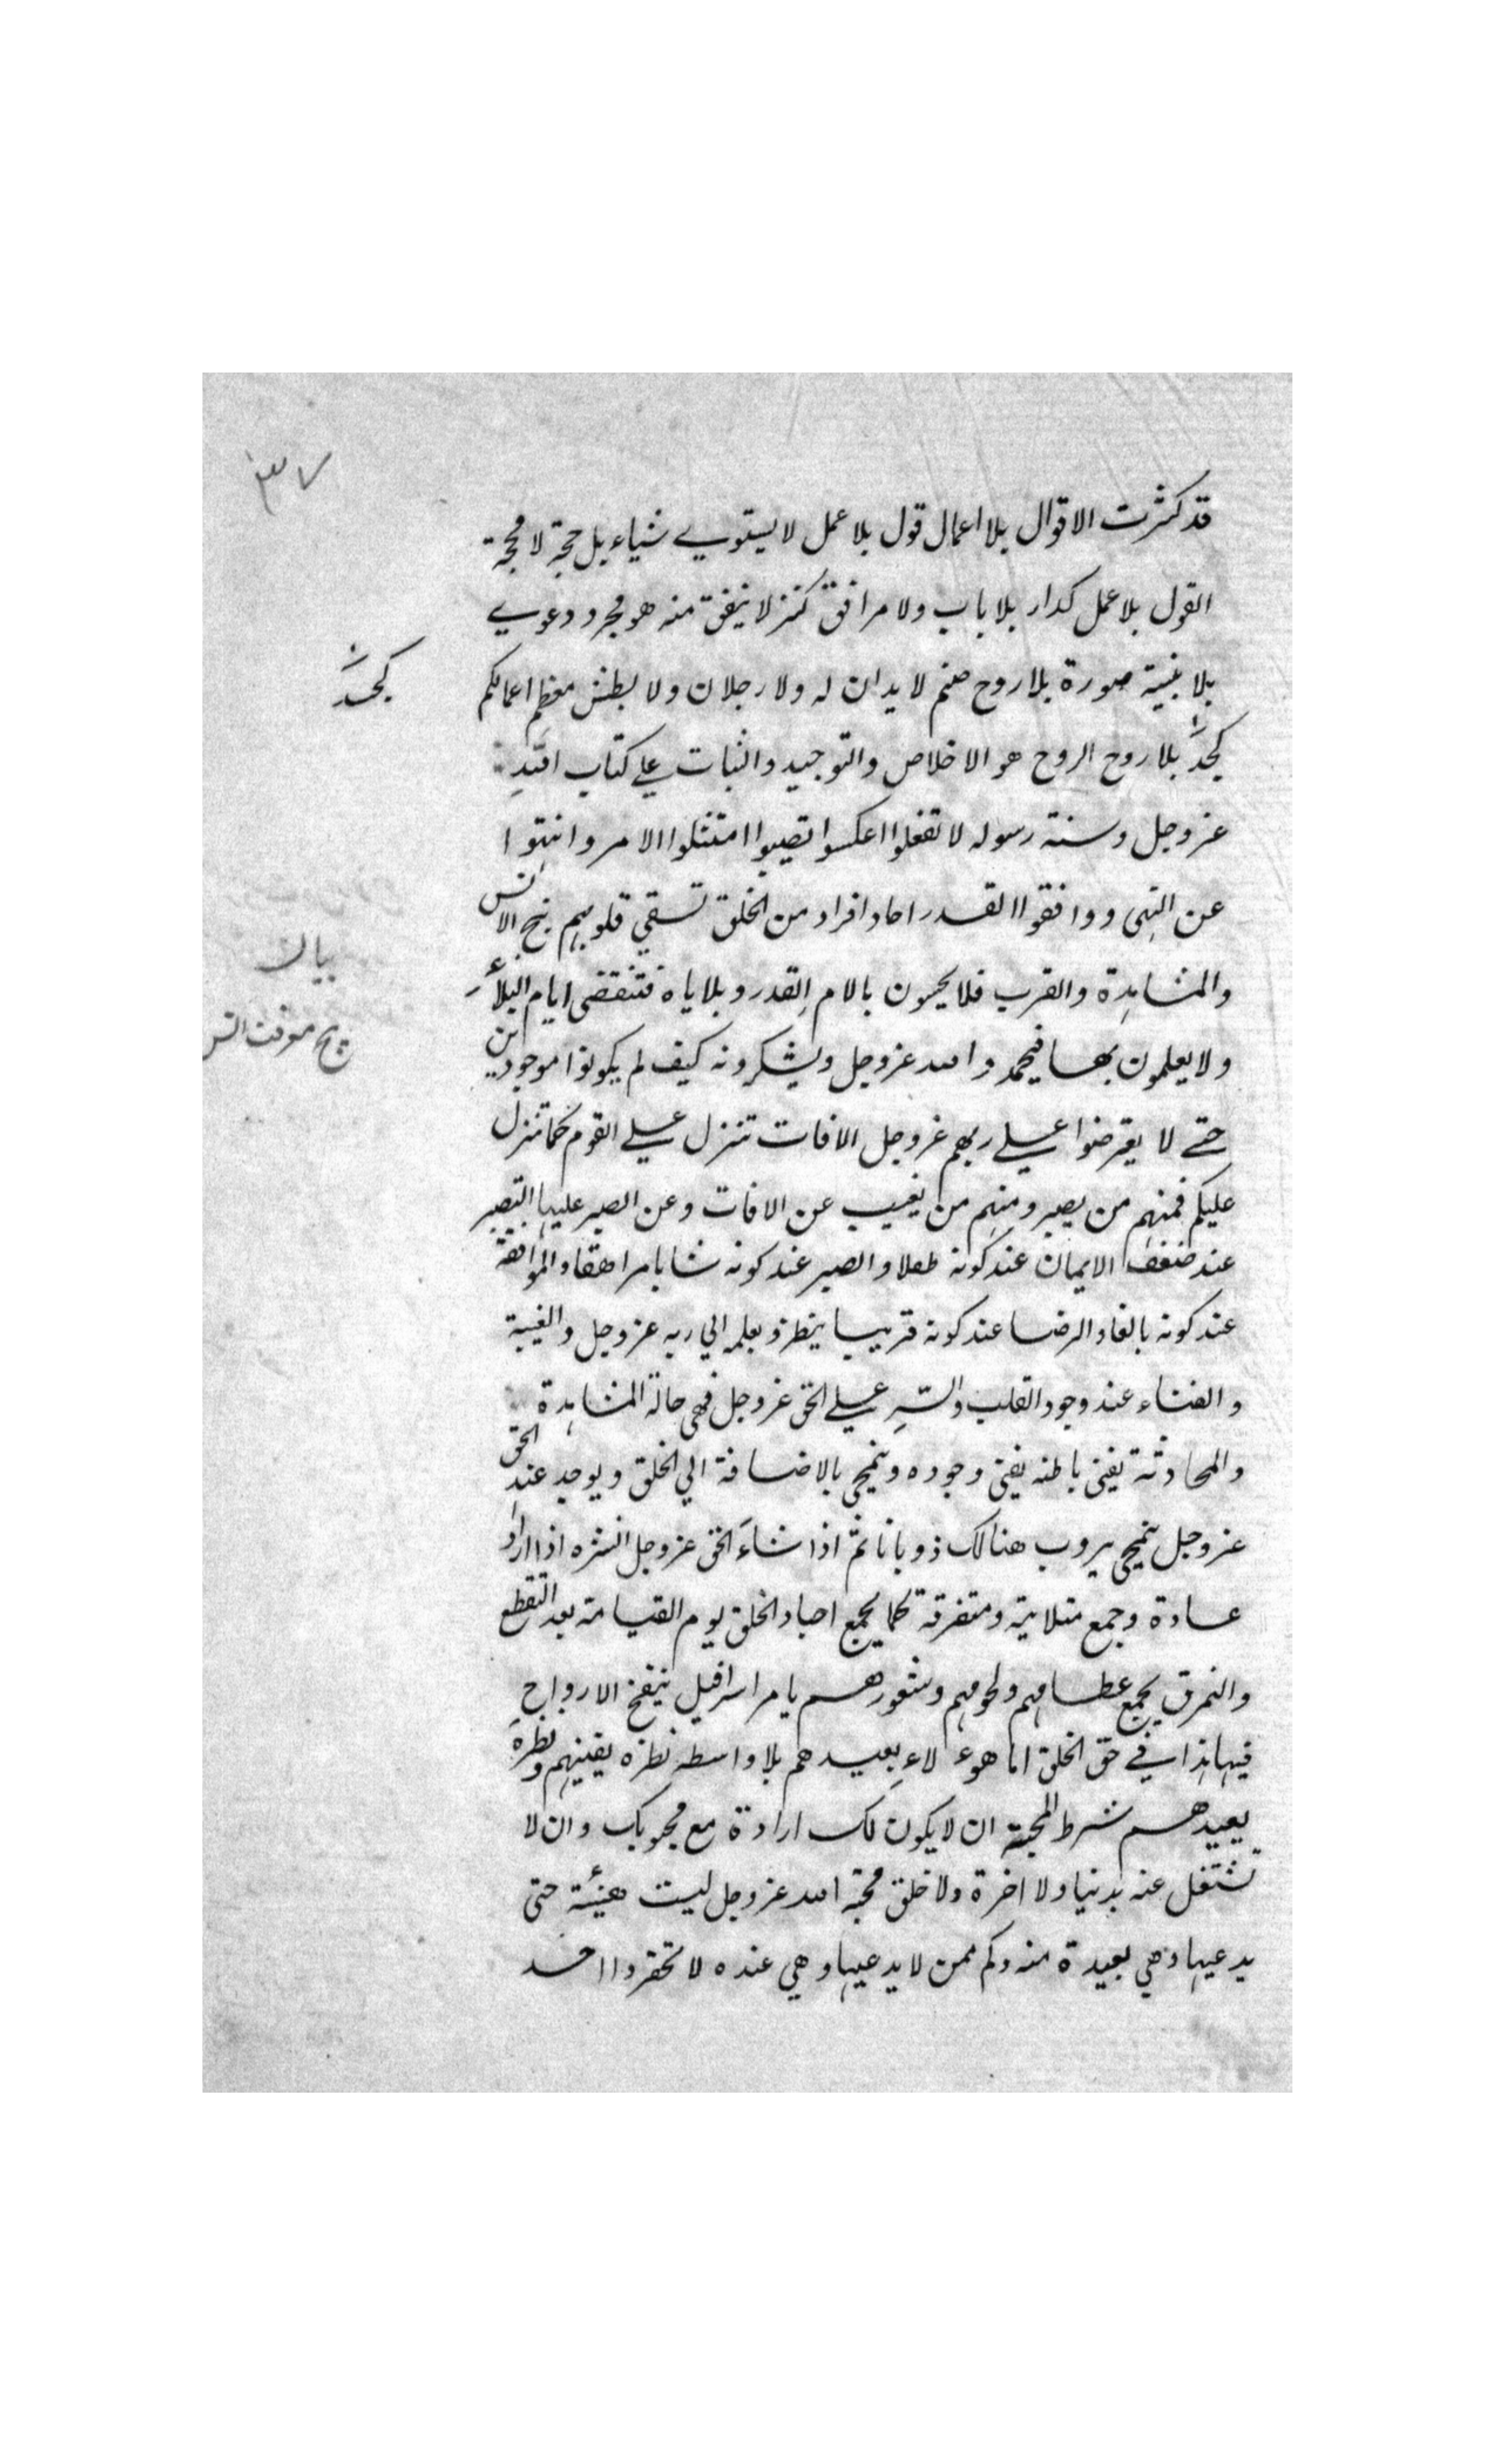 ٣٧
قد كثرت الاقوال بلا اعمال قول بلا عمل لا يستوي شياء بل حجة لا محجة
القول بلا عمل كدار بلا باب ولا مرافق كنز لا ينفق منه هو مجرد دعوي
بلا بنية صورة بلا روح صنم لا يدان له ولا رجلان ولا بطش معظم اعمالكم
كجسد
كجسد بلا روح الروح هو الاخلاص والتوحيد والثبات علي كتاب الله
عز وجل وسنة رسوله لا تغفلوا اعكسوا تصيبوا امتثلوا الامر وانتهوا
عن النهى ووافقوا القدر احاد افراد من الخلق تسقي قلوبهم بنج الانس
والمشاهدة والقرب فلا يحسون بالام القدر وبلاياه فتنقضى ايام البلاء
ولا يعلمون بها فيحمدوا الله عز وجل ويشكرونه كيف لم يكونوا موجودين
حتي لا يعترضوا علي ربهم عز وجل الافات تنزل علي القوم كما تنزل
عليكم فمنهم من يصبر ومنهم من يغيب عن الافات وعن الصبر عليها التصبر
عند ضعف الايمان عند كونه طفلا والصبر عند كونه شابا مراهقا والموافقة
عند كونه بالغا والرضا عند كونه قريبا ينظر بعلمه الي ربه عز وجل والغيبة
والفناء عند وجود القلب والسر علي الحق عز وجل فهى حالة المشاهدة
والمحادثة يفنى باطنه يفنى وجوده وينمحى بالاضافة الي الخلق ويوجد عند الحق
عز وجل ينمحى يروب هنالك ذوبانا ثم اذا شاء الحق عز وجل انشره اذا اراد
عادة وجمع متلايتة ومتفرقة كما يجمع اجساد الخلق يوم القيامة بعد التقطع
والتمزق يجمع عظامهم ولحومهم وشعورهم يامر اسرافيل ينفخ الارواح
فيها هذا في حق الخلق اما هوء لاء يعيدهم بلا واسطه نظرة يفنيهم ونظرة
يعيدهم شرط المحبة ان لا يكون لك ارادة مع محبوبك وان لا
تشتغل عنه بدنيا ولا اخرة ولا خلق محبة الله عز وجل ليست هينة حتى
يدعيها وهي بعيدة منه وكم ممن لا يدعيها وهي عنده لا تحقروا احد